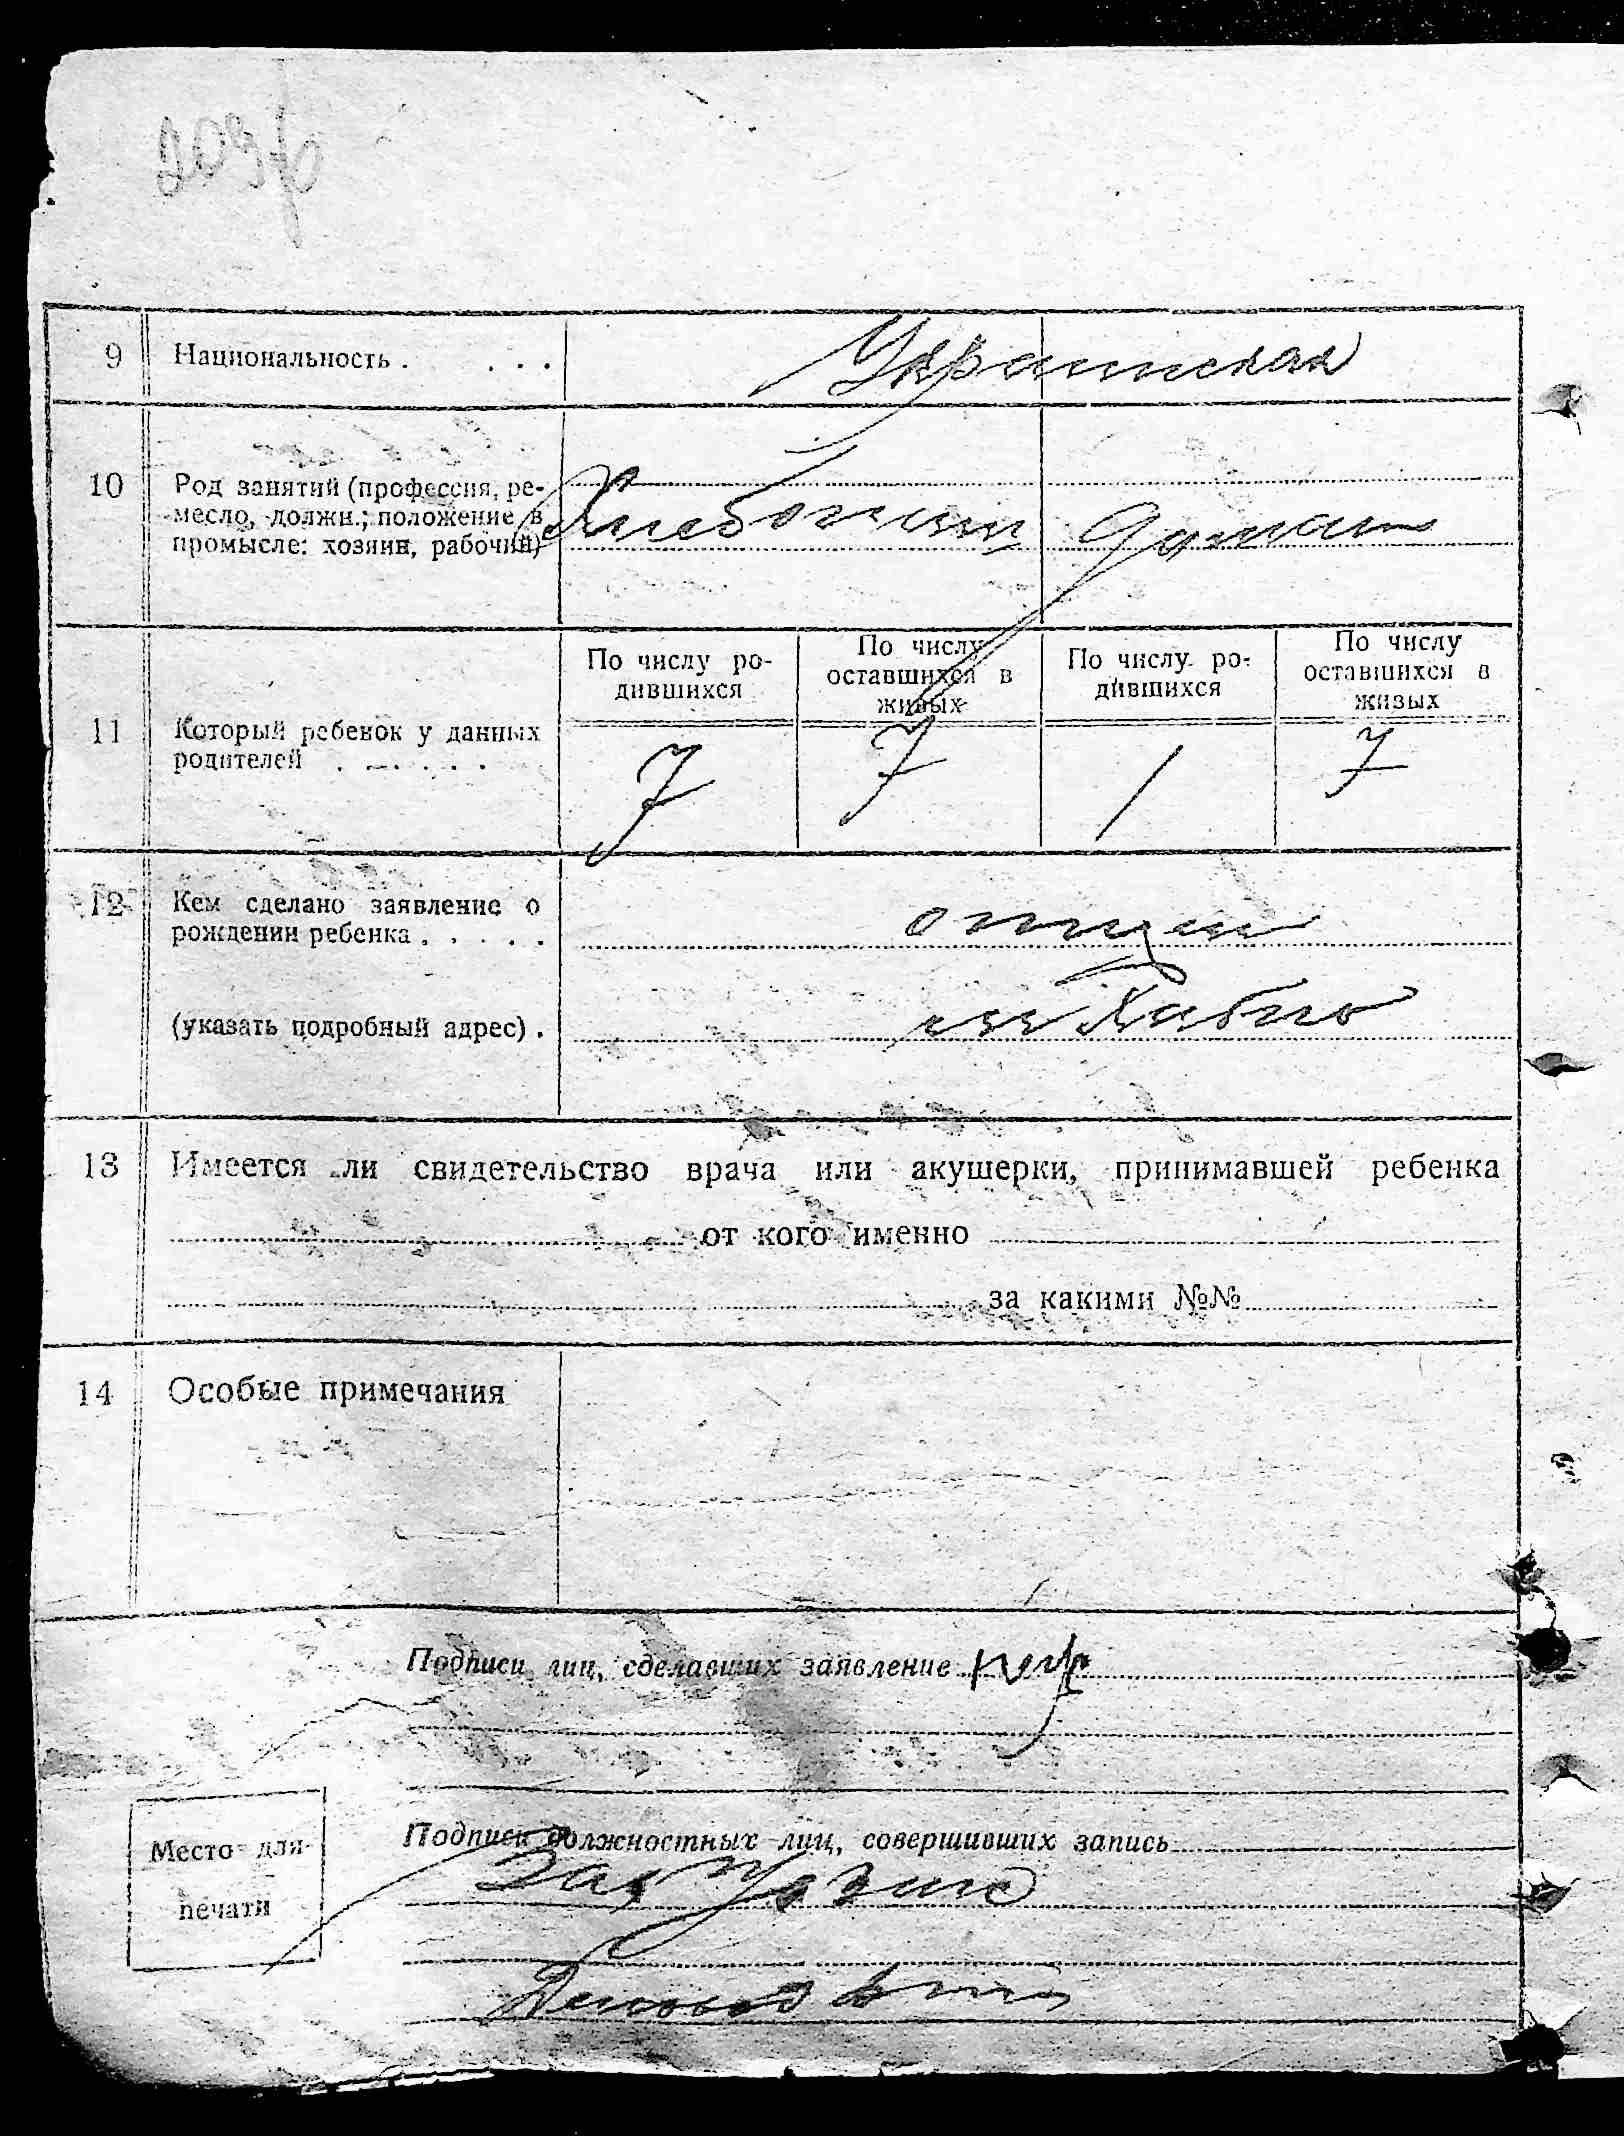 9 Национальность . . . . Украинская
10 Род занятий (профессия, ре-
месло, должн.; положение в
промысле: хозяин, рабочий)
Хлебопашец
По числу ро-
дившихся
По числу
оставшихся в
живых
По числу ро-
дившихся
По числу
оставшихся в
живых
11 Который ребенок у данных
родителей . . . . .
7 7 / 7
12 Кем сделано заявление о
рождении ребенка . . . . . отцем
(указать подробный адрес) . Хабно
13 Имеется ли свидетельство врача или акушерки, принимавшей ребенка
от кого именно
за какими №№
14 Особые примечания
Подписи лиц, сделавших заявление
Подписи должностных лиц, совершивших запись
Место для
печати
Зав
Деловод